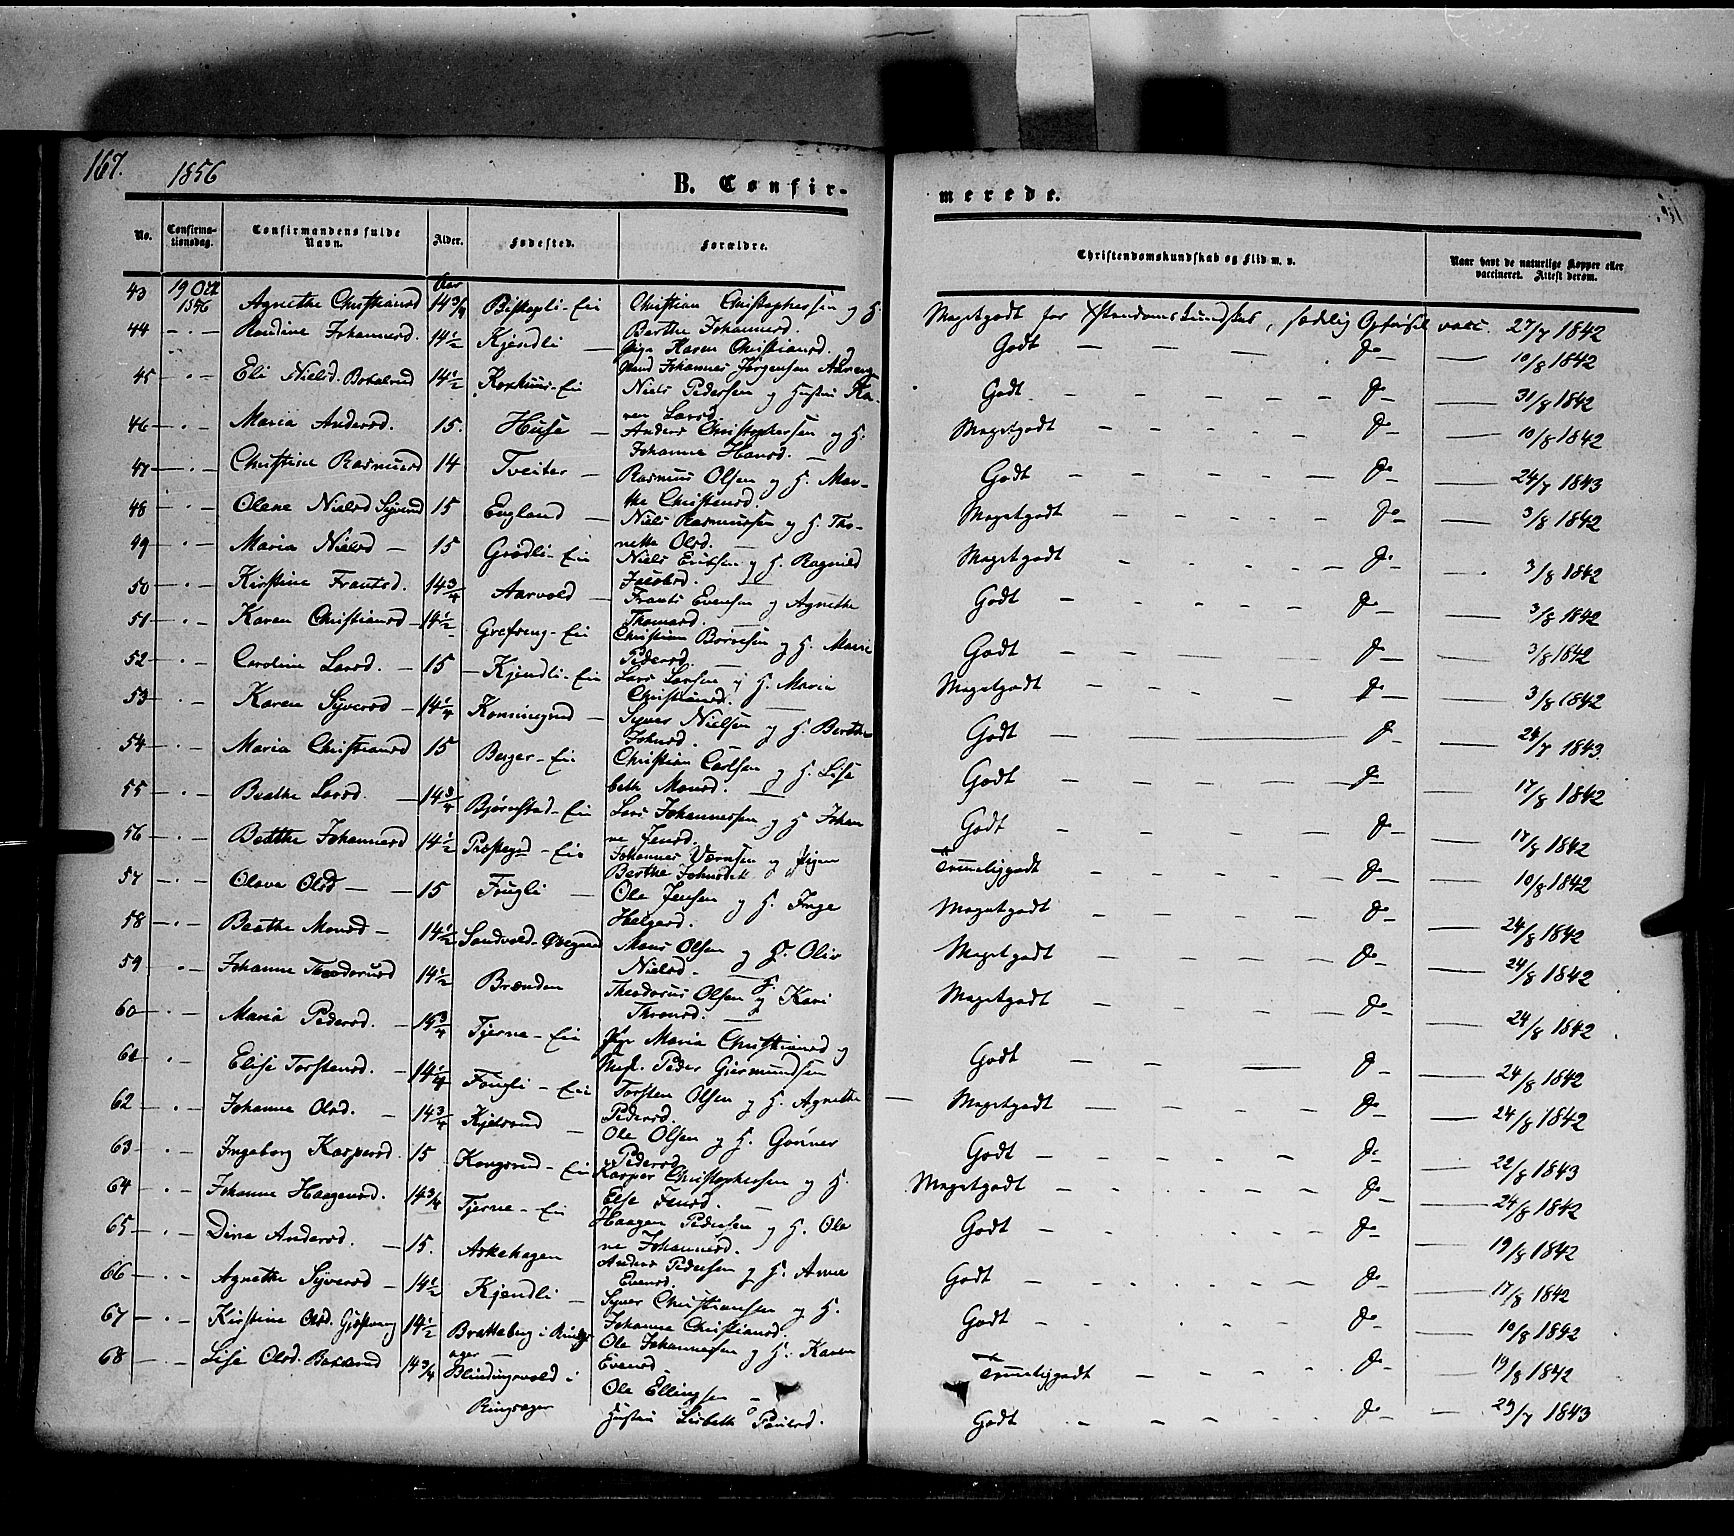 167.
1856
B. Confir-
merede.
No.
Confirma-
tionsdag.
Confirmandens fulde
Navn.
Alder.
Fødested.
Forældre.
Christendomskundskab og Flid m. v.
Naar havt de naturlige Kopper eller
vaccineret. Attest derom.
43 19 Oct 1856 Agnethe Christiansd 14 3/4 Bistopli-Eie Christian Christophersen og H. Berthe Johannesd. Megetgodt for Xstendomskundskab, sædelig Opførsel vacc. 27/7 1842
44 - . - Johannesd. 14 1/2 Kjendli — Pige Karen Christiansd. og Johannes Jørgensen Godt — — — do — 10/8 1842
45 - . - Eli Nielsd. 14 1/2 Eie Niels Pedersen og Hustru Karen Larsd. Godt - - - do — 31/8 1842
46 - . - Maria Andersd. 15. Huse — Anders Christophersen og H. Johanne Hansd. — Megetgodt - - - do — 10/8 1842
47 — . — Christine Rasmusd 14 Tveiter — Rasmus Olsen og H. Marthe Christensd. Godt - - - do — 24/7 1843
48 - . - Olene Nielsd 15 England — Niels Rasmussen og H. Thonette Olsd. — Megetgodt - - - do — 3/8 1842
49 - . - Maria Nielsd — 15 Grødli-Eie Niels Eriksen og H. Ragnild Jacobsd. Megetgodt - - - do — 3/8 1842
50 — . — Kirstine Frantsd. 14 3/4 Aarvold — Frants Evensen og Agnethe Thomasd. Godt - - - do — 3/8 1842
51 - . - Karen Christiansd 14 1/2 Grefseng-Eie Christian Børresen og H. Marie Pedersd. Godt - - - do — 3/8 1842
52 — . — Caroline Larsd. — 15 Kjendli-Eie Lars Larsen og H. Maria Christiansd. Megetgodt - - - do — 3/8 1842
53 - . - Karen Syversd 14 1/4 — Syver Nielsen og H. Berthe Johnsd. Godt - - - do — 24/7 1843.
54 - . - Maria Christiansd 15 Berger-Eie Christian Carlsen og H. Lisabeth Monsd. — Godt - - - do — 17/8 1842
55 - . - Beathe Larsd. 14 3/4 Bjørnstad-Eie Lars Johannessen og H Johanne Jensd. Godt - - - do — 17/8 1842
56 - . - Johannesd 14 1/2 Præstegd-Eie Johannes og Pigen Berthe Temmeliggodt - - - do — 10/8 1842
57 - . - Olava Olsd — 15 Fougli — Ole Jensen og H. Inge Helgesd. Megetgodt - - - do — 24/8 1842
58 - . - Beathe Monsd — 14 1/2 Sandvold- Mons Olsen og H. Oliv Nielsd. — Megetgodt - - - do — 24/8 1842
59 - . - Johanne Theodorusd 14 1/2 Brænden Theodorus Olsen og Kari Thronsd. Megetgodt - - - do — 24/8 1842
60 - . - Maria Pedersd. — 14 3/4 Tjerne-Eie Pige Maria Christiansd og Peder Giermundsen Godt - - - do — 24/8 1842
61 - . - Elise Torstensd. — 14 1/4 Fougli-Eie Torsten Olsen og H. Agnethe Pedersd. Megetgodt - - - do — 24/8 1842
62 - . - Johanne Olsd. — 14 3/4 Kjelsrud — Ole Olsen og H. Gunner Pedersd. Godt - - - do — 22/8 1843
63 - . - Ingeborg Kaspersd. 15 Kongsrud-Eie Kasper Christophersen og H. Else Jensd. Megetgodt - - - do — 24/8 1842
64 - . - Johanne Haagensd. 14 3/4 Tjerne-Eie Haagen Pedersen og H. Olene Johannesd. Godt - - - do — 19/8 1842
65 - . - Dina Andersd. — 15. Askehagen Anders Pedersen og H. Anne Evensd. Godt - - - do — 17/8 1842
66 - . - Agnethe Syversd — 14 1/2 Kjendli — Syver Christiansen og H. Johanne Christiansd. Godt - - - do — 10/8 1842
67 - . - Kirstine Olsd. 14 1/2 Bratteberg i Ringsager — Ole Johannessen og H. Karen Evensd. Temmeliggodt - - - do — 19/8 1842
68 - . - Lise Olsd. 14 3/4 Blindingsvold i Ringsager Ole Ellingsen — Hustru Lisbeth Paulsd. Godt - - - do — 29/7 1843